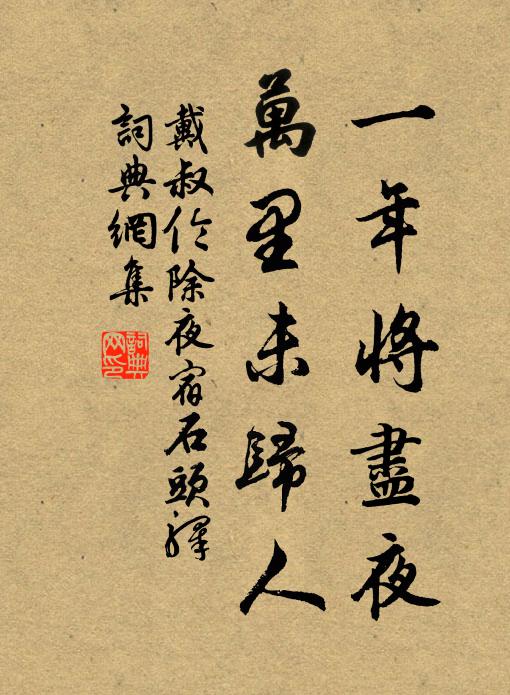 一年將盡夜
萬里未歸人
戴叔倫除夜宿石頭驛
詞典網集
詞典網印